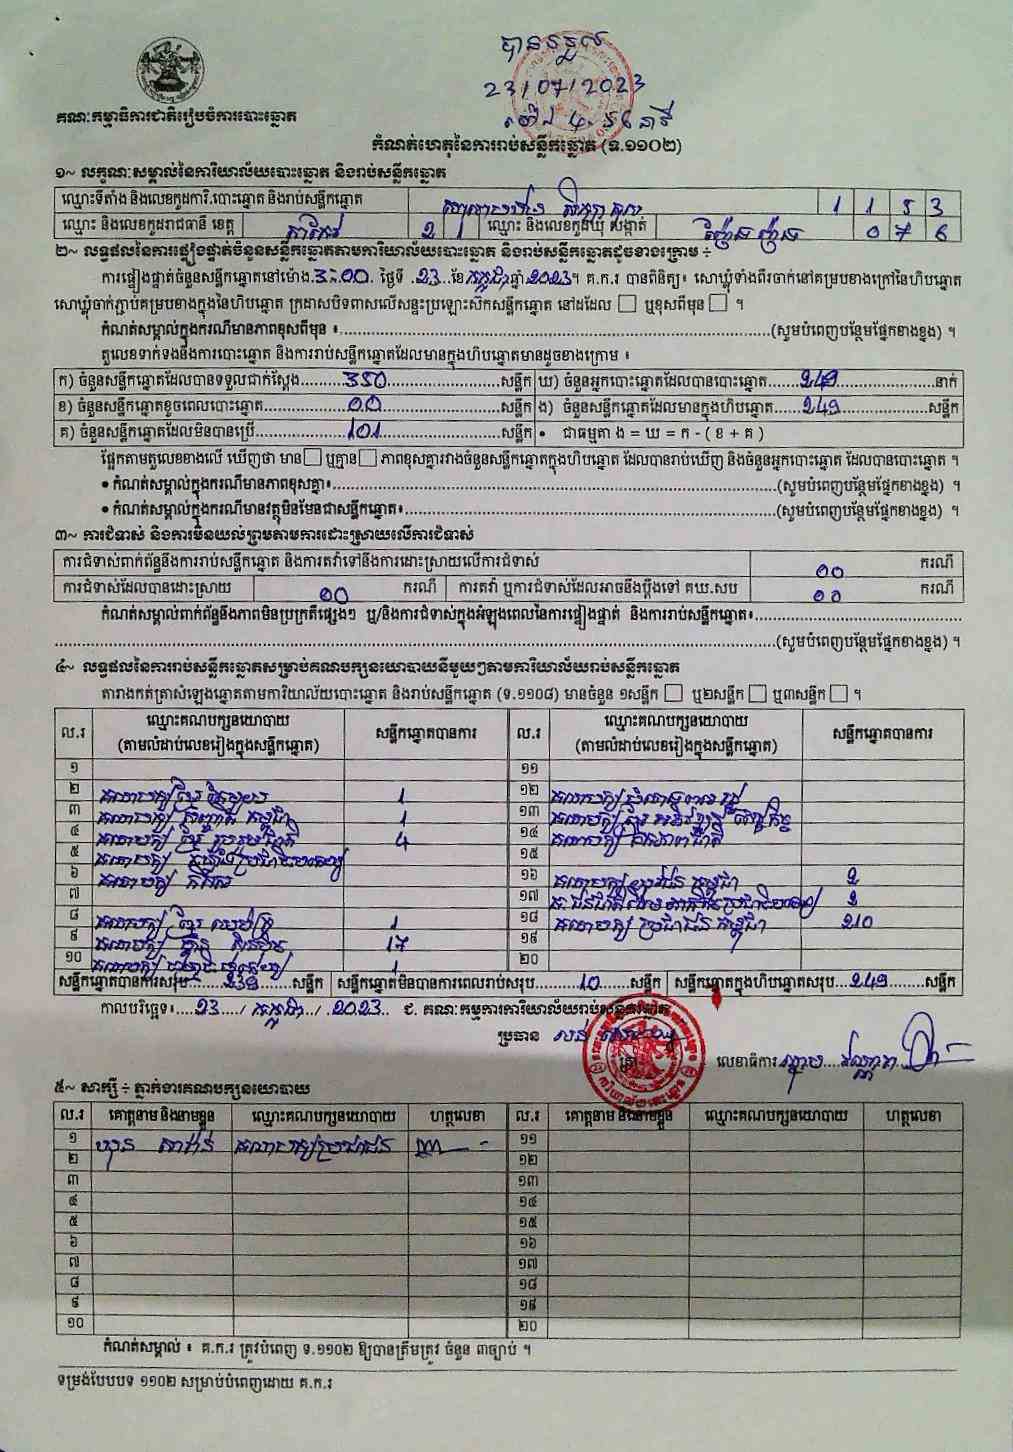 បានទទួល
23/07/2023
គណៈកម្មាធិការជាតិរៀបចំការបោះឆ្នោត
កំណត់ហេតុនៃការរាប់សន្លឹកឆ្នោត (ទ.១១០២)
១~ លក្ខណៈសម្គាល់នៃការិយាល័យបោះឆ្នោត និងរាប់សន្លឹកឆ្នោត
ឈ្មោះទីតាំង និងលេខកូដការិ.បោះឆ្នោត និងរាប់សន្លឹកឆ្នោត 1 1 5 3
ឈ្មោះ និងលេខកូដរាជធានី ខេត្ត តាកែវ 2 1 ឈ្មោះ និងលេខកូដឃុំ សង្កាត់ 0 7 6
២~ លទ្ធផលនៃការផ្ទៀងផ្ទាត់ចំនួនសន្លឹកឆ្នោតតាមការិយាល័យបោះឆ្នោត និងរាប់សន្លឹកឆ្នោតដូចខាងក្រោម ÷
ការផ្ទៀងផ្ទាត់ចំនួនសន្លឹកឆ្នោតនៅម៉ោង.3:00. ថ្ងៃទី .23...ខែកក្កដាឆ្នាំ.2023។ គ.ក.រ បានពិនិត្យ៖ សោឃ្លុំទាំងពីរចាក់នៅគម្របខាងក្រៅនៃហិបឆ្នោត
សោឃ្លុំចាក់ភ្ជាប់គម្របខាងក្នុងនៃហិបឆ្នោត ក្រដាសបិទពាសលើសន្ទះប្រឡោះស៊កសន្លឹកឆ្នោត នៅដដែល ☐ ឬខុសពីមុន ☐ ។
កំណត់សម្គាល់ក្នុងករណីមានភាពខុសពីមុន ៖......(សូមបំពេញបន្ថែមផ្នែកខាងខ្នង) ។
តួលេខទាក់ទងនឹងការបោះឆ្នោត និងការរាប់សន្លឹកឆ្នោតដែលមានក្នុងហិបឆ្នោតមានដូចខាងក្រោម ៖
ក) ចំនួនសន្លឹកឆ្នោតដែលបានទទួលជាក់ស្តែង.....350.....សន្លឹក ឃ) ចំនួនអ្នកបោះឆ្នោតដែលបានបោះឆ្នោត.....249.....នាក់
ខ) ចំនួនសន្លឹកឆ្នោតខូចពេលបោះឆ្នោត.....00.....សន្លឹក ង) ចំនួនសន្លឹកឆ្នោតដែលមានក្នុងហិបឆ្នោត.....249.....សន្លឹក
គ) ចំនួនសន្លឹកឆ្នោតដែលមិនបានប្រើ.....101.....សន្លឹក • ជាធម្មតា ង = ឃ = ក - ( ខ + គ )
ផ្អែកតាមតួលេខខាងលើ ឃើញថា មាន☐ ឬគ្មាន☐ ភាពខុសគ្នារវាងចំនួនសន្លឹកឆ្នោតក្នុងហិបឆ្នោត ដែលបានរាប់ឃើញ និងចំនួនអ្នកបោះឆ្នោត ដែលបានបោះឆ្នោត ។
• កំណត់សម្គាល់ក្នុងករណីមានភាពខុសគ្នា៖......(សូមបំពេញបន្ថែមផ្នែកខាងខ្នង) ។
• កំណត់សម្គាល់ក្នុងករណីមានវត្ថុមិនមែនជាសន្លឹកឆ្នោត៖......(សូមបំពេញបន្ថែមផ្នែកខាងខ្នង) ។
៣~ ការជំទាស់ និងការមិនយល់ព្រមតាមការដោះស្រាយលើការជំទាស់
ការជំទាស់ពាក់ព័ន្ធនឹងការរាប់សន្លឹកឆ្នោត និងការតវ៉ាទៅនឹងការដោះស្រាយលើការជំទាស់ 00 ករណី
ការជំទាស់ដែលបានដោះស្រាយ 00 ករណី ការតវ៉ា ឬការជំទាស់ដែលអាចនឹងប្តឹងទៅ គឃ.សប 00 ករណី
កំណត់សម្គាល់ពាក់ព័ន្ធនឹងភាពមិនប្រក្រតីផ្សេងៗ ឬ/និងការជំទាស់ក្នុងអំឡុងពេលនៃការផ្ទៀងផ្ទាត់ និងការរាប់សន្លឹកឆ្នោត៖......
......(សូមបំពេញបន្ថែមផ្នែកខាងខ្នង) ។
៤~ លទ្ធផលនៃការរាប់សន្លឹកឆ្នោតសម្រាប់គណបក្សនយោបាយនីមួយៗតាមការិយាល័យរាប់សន្លឹកឆ្នោត
តារាងកត់ត្រាសំឡេងឆ្នោតតាមការិយាល័យបោះឆ្នោត និងរាប់សន្លឹកឆ្នោត (ទ.១១០៨) មានចំនួន ១សន្លឹក ☐ ឬ២សន្លឹក ☐ ឬ៣សន្លឹក ☐ ។
ល.រ ឈ្មោះគណបក្សនយោបាយ (តាមលំដាប់លេខរៀងក្នុងសន្លឹកឆ្នោត) សន្លឹកឆ្នោតបានការ ល.រ ឈ្មោះគណបក្សនយោបាយ (តាមលំដាប់លេខរៀងក្នុងសន្លឹកឆ្នោត) សន្លឹកឆ្នោតបានការ
១ ១១
២ គណបក្ស ខ្មែរ តែមួយ 1 ១២
៣ គណបក្ស សញ្ជាតិ កម្ពុជា 1 ១៣
៤ គណបក្ស ខ្មែរ រួបរួមជាតិ 4 ១៤
៥ ១៥
៦ ១៦ គណបក្ស យុវជន កម្ពុជា 2
៧ ១៧ 2
៨ គណបក្ស ខ្មែរ ឈប់ក្រ 1 ១៨ គណបក្ស ប្រជាជន កម្ពុជា 210
៩ គណបក្ស ហ្វ៊ុនស៊ិនប៉ិច 17 ១៩
១០ 1 ២០
សន្លឹកឆ្នោតបានការសរុប...239...សន្លឹក សន្លឹកឆ្នោតមិនបានការពេលរាប់សរុប...10...សន្លឹក សន្លឹកឆ្នោតក្នុងហិបឆ្នោតសរុប...249...សន្លឹក
កាលបរិច្ឆេទ៖....23..../ កក្កដា ./ .2023.. ជ. គណៈកម្មការការិយាល័យរាប់សន្លឹកឆ្នោត
ប្រធាន លេខាធិការ
៥~ សាក្សី ÷ ភ្នាក់ងារគណបក្សនយោបាយ
ល.រ គោត្តនាម និងនាមខ្លួន ឈ្មោះគណបក្សនយោបាយ ហត្ថលេខា ល.រ គោត្តនាម និងនាមខ្លួន ឈ្មោះគណបក្សនយោបាយ ហត្ថលេខា
១ គណបក្សប្រជាជន ១១
២ ១២
៣ ១៣
៤ ១៤
៥ ១៥
៦ ១៦
៧ ១៧
៨ ១៨
៩ ១៩
១០ ២០
កំណត់សម្គាល់ ៖ គ.ក.រ ត្រូវបំពេញ ទ.១១០២ ឱ្យបានត្រឹមត្រូវ ចំនួន ៣ច្បាប់ ។
ទម្រង់បែបបទ ១១០២ សម្រាប់បំពេញដោយ គ.ក.រ